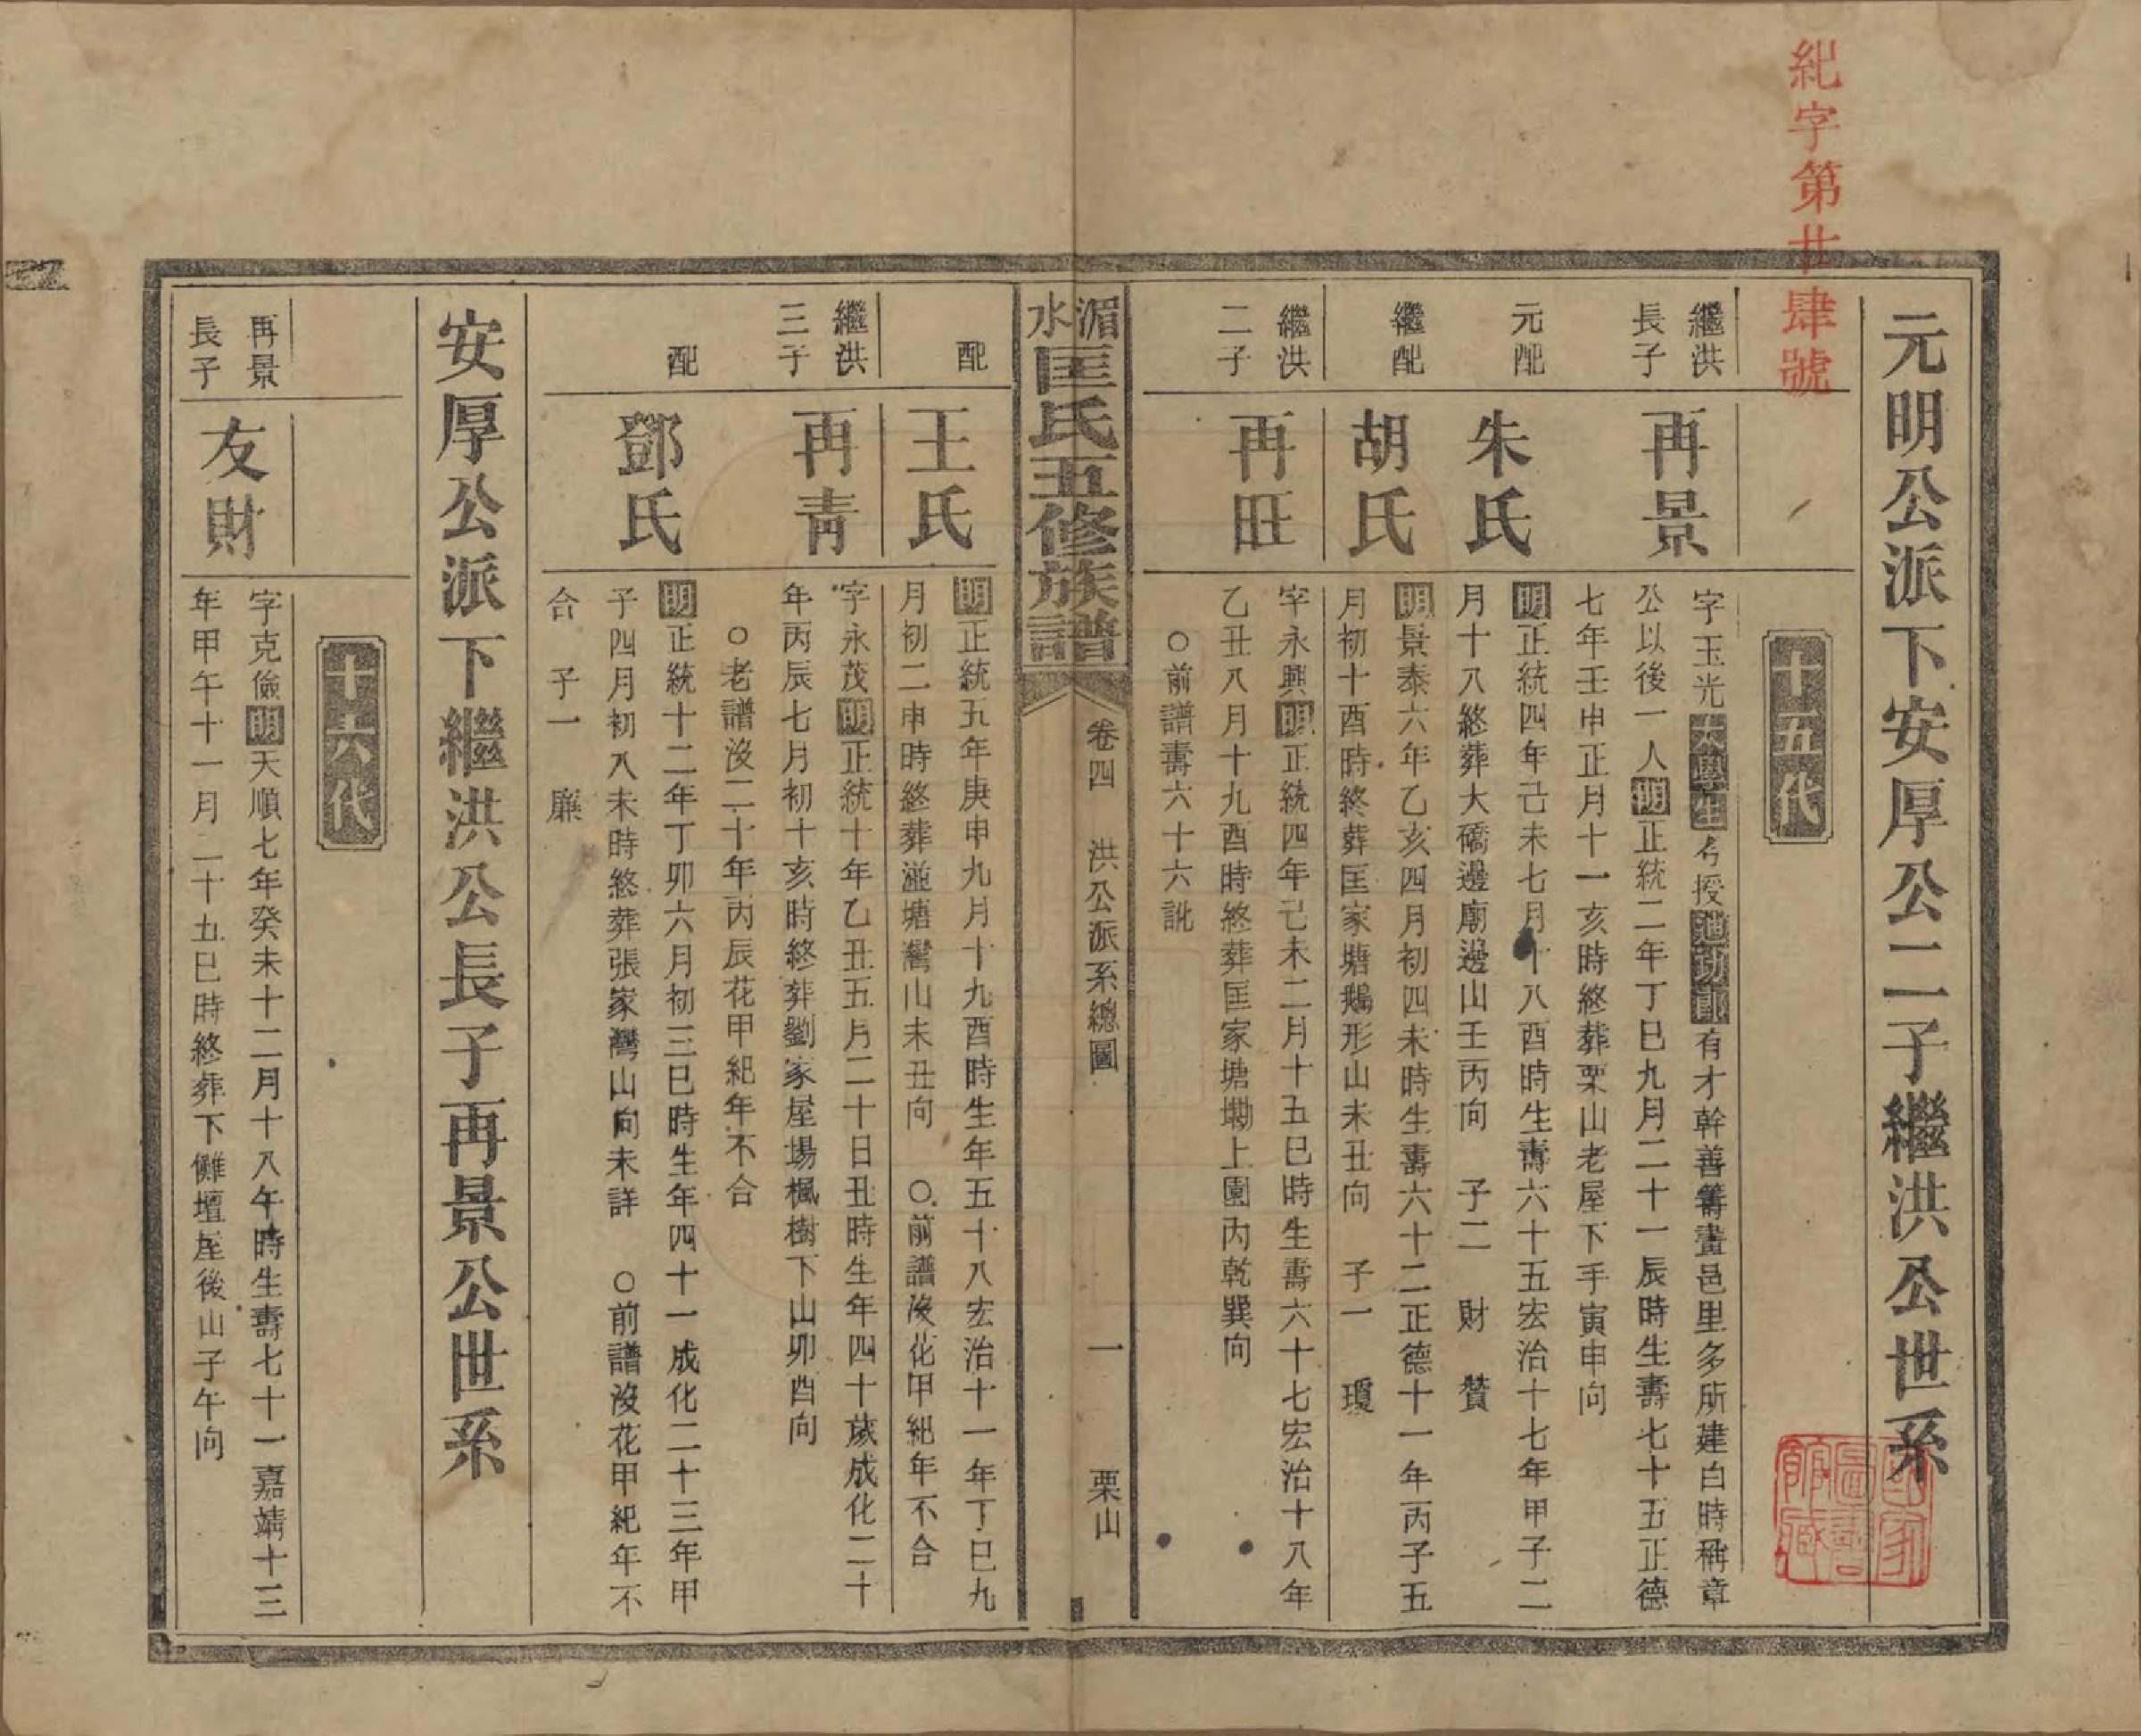 紀字第廿肆號
元明公派下安厚公二子繼洪公世系
十五代
繼洪長子
再景
字玉光太學生名授迪功郎有才幹善籌畫邑里多所建白時稱章
公以後一人明正統二年丁巳九月二十一辰時生壽七十五正德
七年壬申正月十一亥時終葬栗山老屋下手寅申向
元配
朱氏
明正統四年己未七月十八酉時生壽六十五宏治十七年甲子二
月十八終葬大礄邊廟邊山壬丙向 子二 財 贊
繼配
胡氏
明景泰六年乙亥四月初四未時生壽六十二正德十一年丙子五
月初十酉時終葬匡家塘鵝形山未丑向 子一 瓊
繼洪二子
再旺
字永興明正統四年己未二月十五巳時生壽六十七宏治十八年
乙丑八月十九酉時終葬匡家塘塝上園內乾巽向
○前譜壽六十六訛
湄水匡氏五修族譜
卷四 洪公派系總圖
一 栗山
配
王氏
明正統五年庚申九月十九酉時生年五十八宏治十一年丁巳九
月初二申時終葬塘灣山未丑向 ○前譜沒花甲紀年不合
繼洪三子
再青
字永茂明正統十年乙丑五月二十日丑時生年四十歲成化二十
年丙辰七月初十亥時終葬劉家屋場楓樹下山卯酉向
○老譜沒二十年丙辰花甲紀年不合
配
鄧氏
明正統十二年丁卯六月初三巳時生年四十一成化二十三年甲
子四月初八未時終葬張家灣山向未詳 ○前譜沒花甲紀年不
合 子一 廉
安厚公派下繼洪公長子再景公世系
十六代
再景長子
友財
字克儉明天順七年癸未十二月十八午時生壽七十一嘉靖十三
年甲午十一月二十九巳時終葬下儺壇屋後山子午向
國家圖書館藏